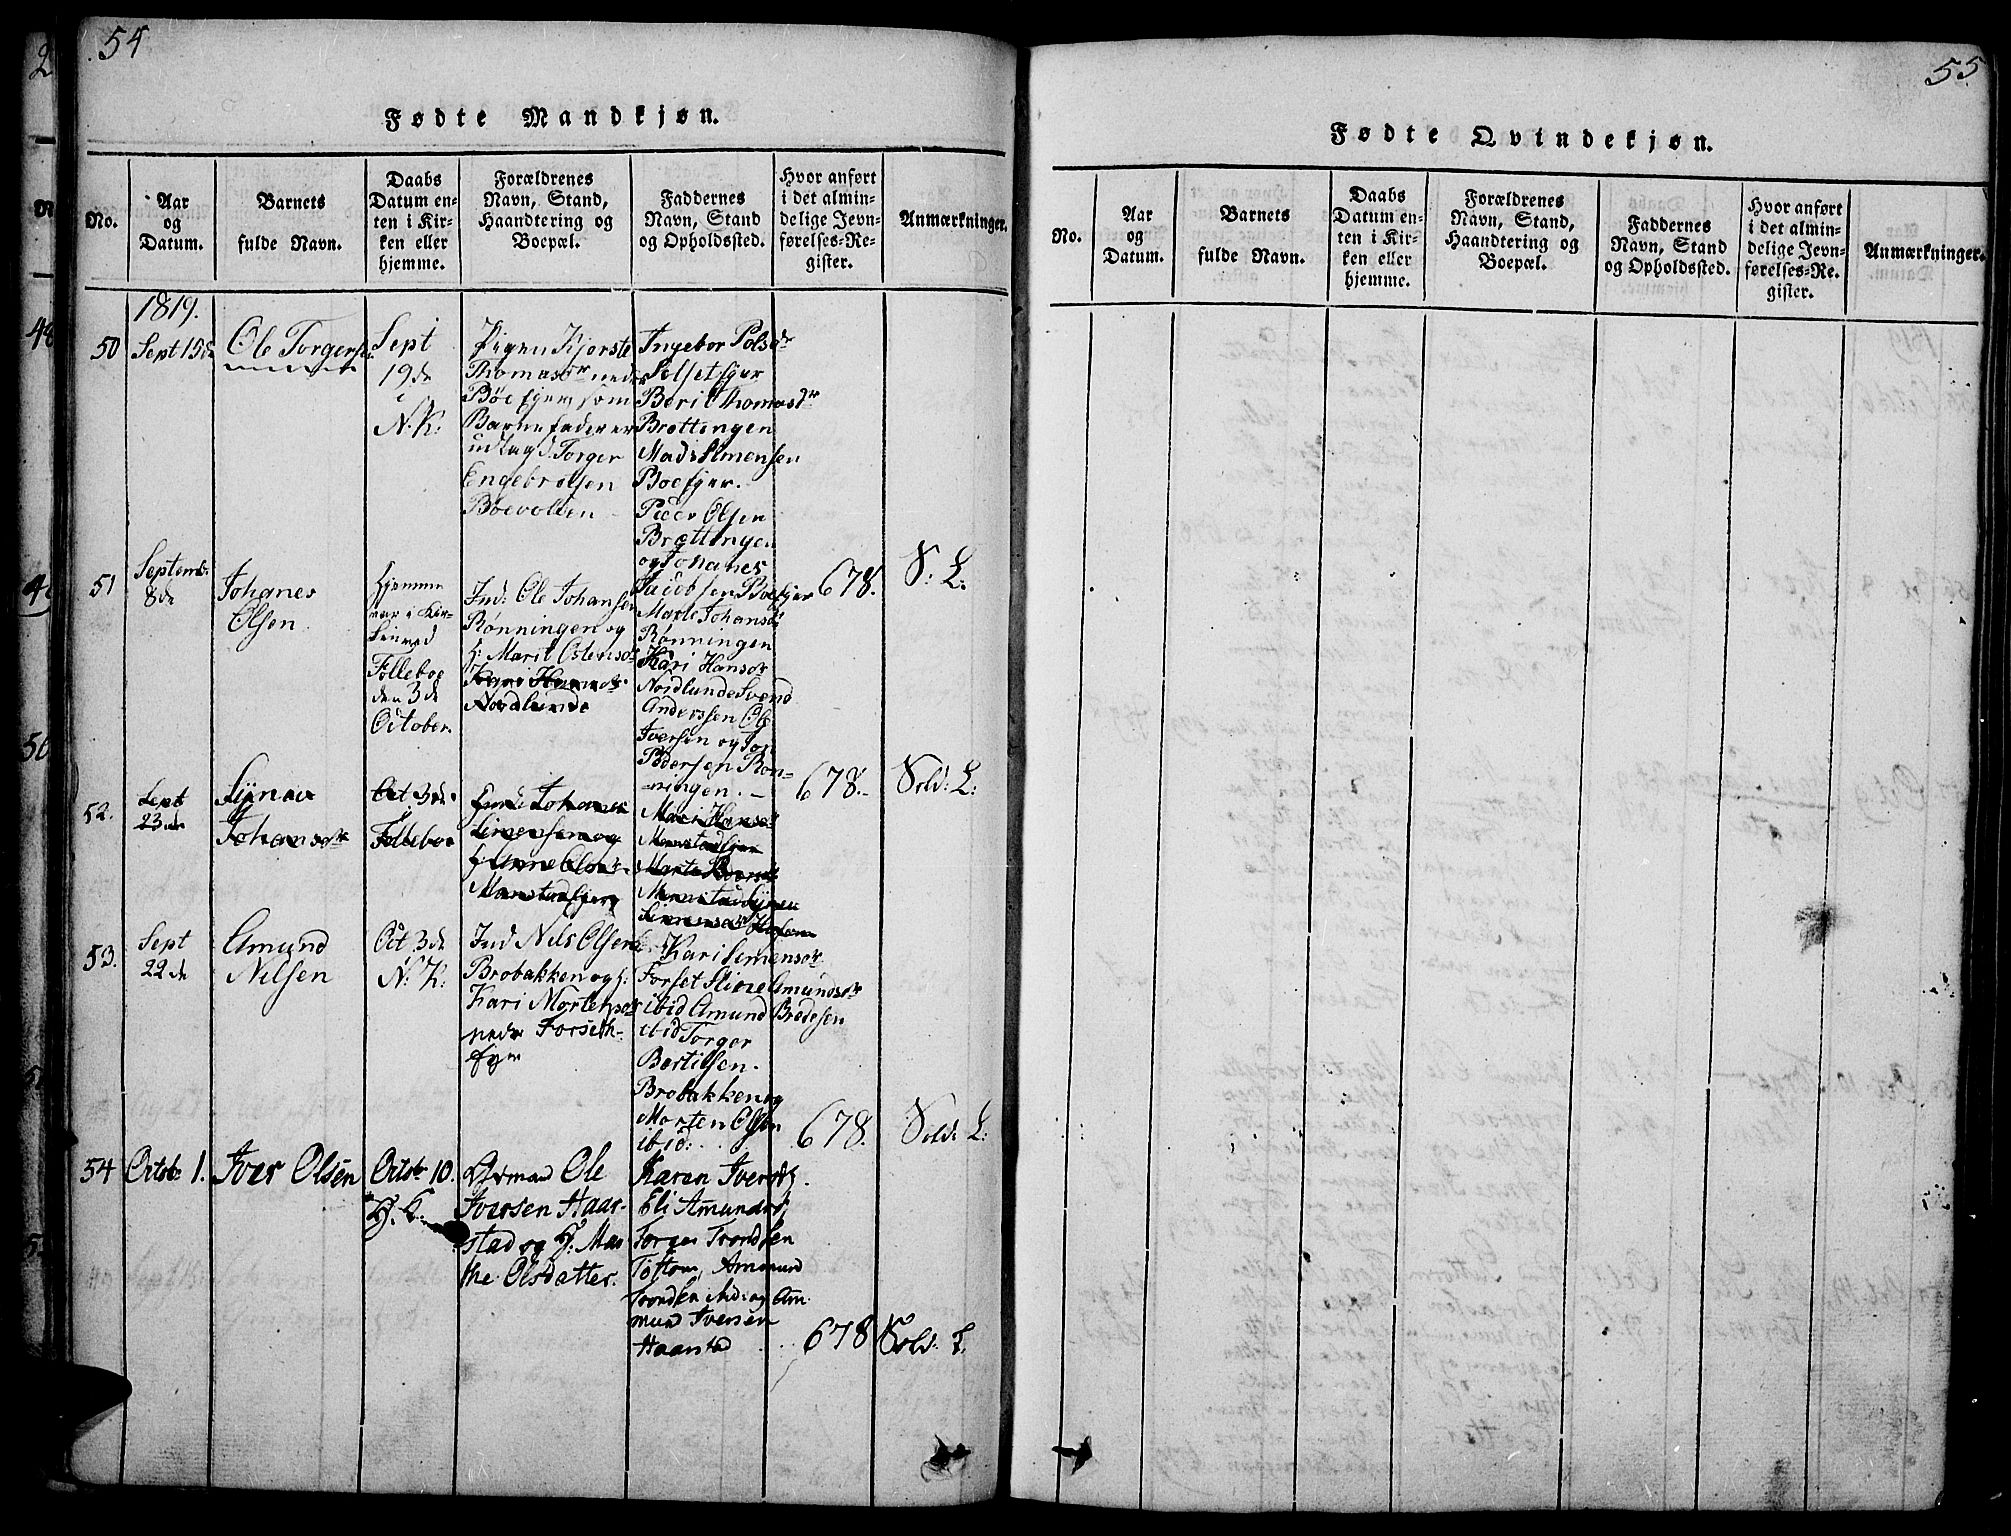 54
Fødte Mandkjøn.
No.
Aar
og
Datum.
Barnets
fulde Navn.
Daabs
Datum en-
ten i Kir-
ken eller
hjemme.
Forældrenes
Navn, Stand,
Haandtering og
Boepæl.
Faddernes
Navn, Stand
og Opholdssted.
Hvor anført
i det almin-
delige Jevn-
førelses-Re-
gister.
Anmærkninger.
1819.
50
Sept 15de
Ole Torgersen
Sept
19de
i
N. K:
Pigen Kjerste
Thomasdr neder
Böe ejer som
Barnefader er
udlagd Torger
Engebretsen
Böevolden
Ingebor Polsdr
Solset ejer
Berit Thomasdr
Brottingen
Mads Simensen
Boe ejer.
Peder Olsen
Brættingen
og Johanes
Jacobsen Boe ejer
678.
S: L:
51
Septemb:
8de
Johanes
Olsen
hjemme
var i Kir-
ken ved
Følleboe
den 3de
October
Ind: Ole Johansen
Rönningen og
h: Marit Ostensdr
Kari Hansdr
Nordlunde
Marte Johansdr
Rønningen
Kari Hansdr
Nordlunde Svend
Anderssen Ole
Iversen og Jon
Pedersen Rön-
ningen. -
678.
Sold: L:
52.
Sept
23de
Johansdr
Oct 3de
Følleboe
Ind: Johannes
Simensen og
h: Anne Olsdr
Mari Hansdr
53.
Sept
22de
Amund
Nilsen
Oct 3de
N: K:
Ind Nils Olsen
Brobakken og h:
Kari Mortensdr
neder Forseth-
Kari Simensdr
Forset Stine Amundsdr
ibid Amund Bredesen
ibid Torger
Bertilsen
Brobakken og
Morten Olsen
ibid:
678.
Sold: L:
54
Octob: 1.
Iver Olsen
Octob: 10.
H. K:
Ole
Iversen Haar-
stad og H: Mar
the Olsdatter.
Karen Iversd:
Eli Amundsd:
Torger Trondsen
Toftom, Ammund
Trondsen og Am
mund Iversen
Haarstad
678
Sold: L.
55.
Fødte Qvindekjøn.
No.
Aar
og
Datum.
Barnets
fulde Navn.
Daabs
Datum en-
ten i Kir-
ken eller
hjemme.
Forældrenes
Navn, Stand,
Haandtering og
Boepæl.
Faddernes
Navn, Stand
og Opholdssted.
Hvor anført
i det almin-
delige Jevn-
førelses-Re-
gister.
Anmærkninger.